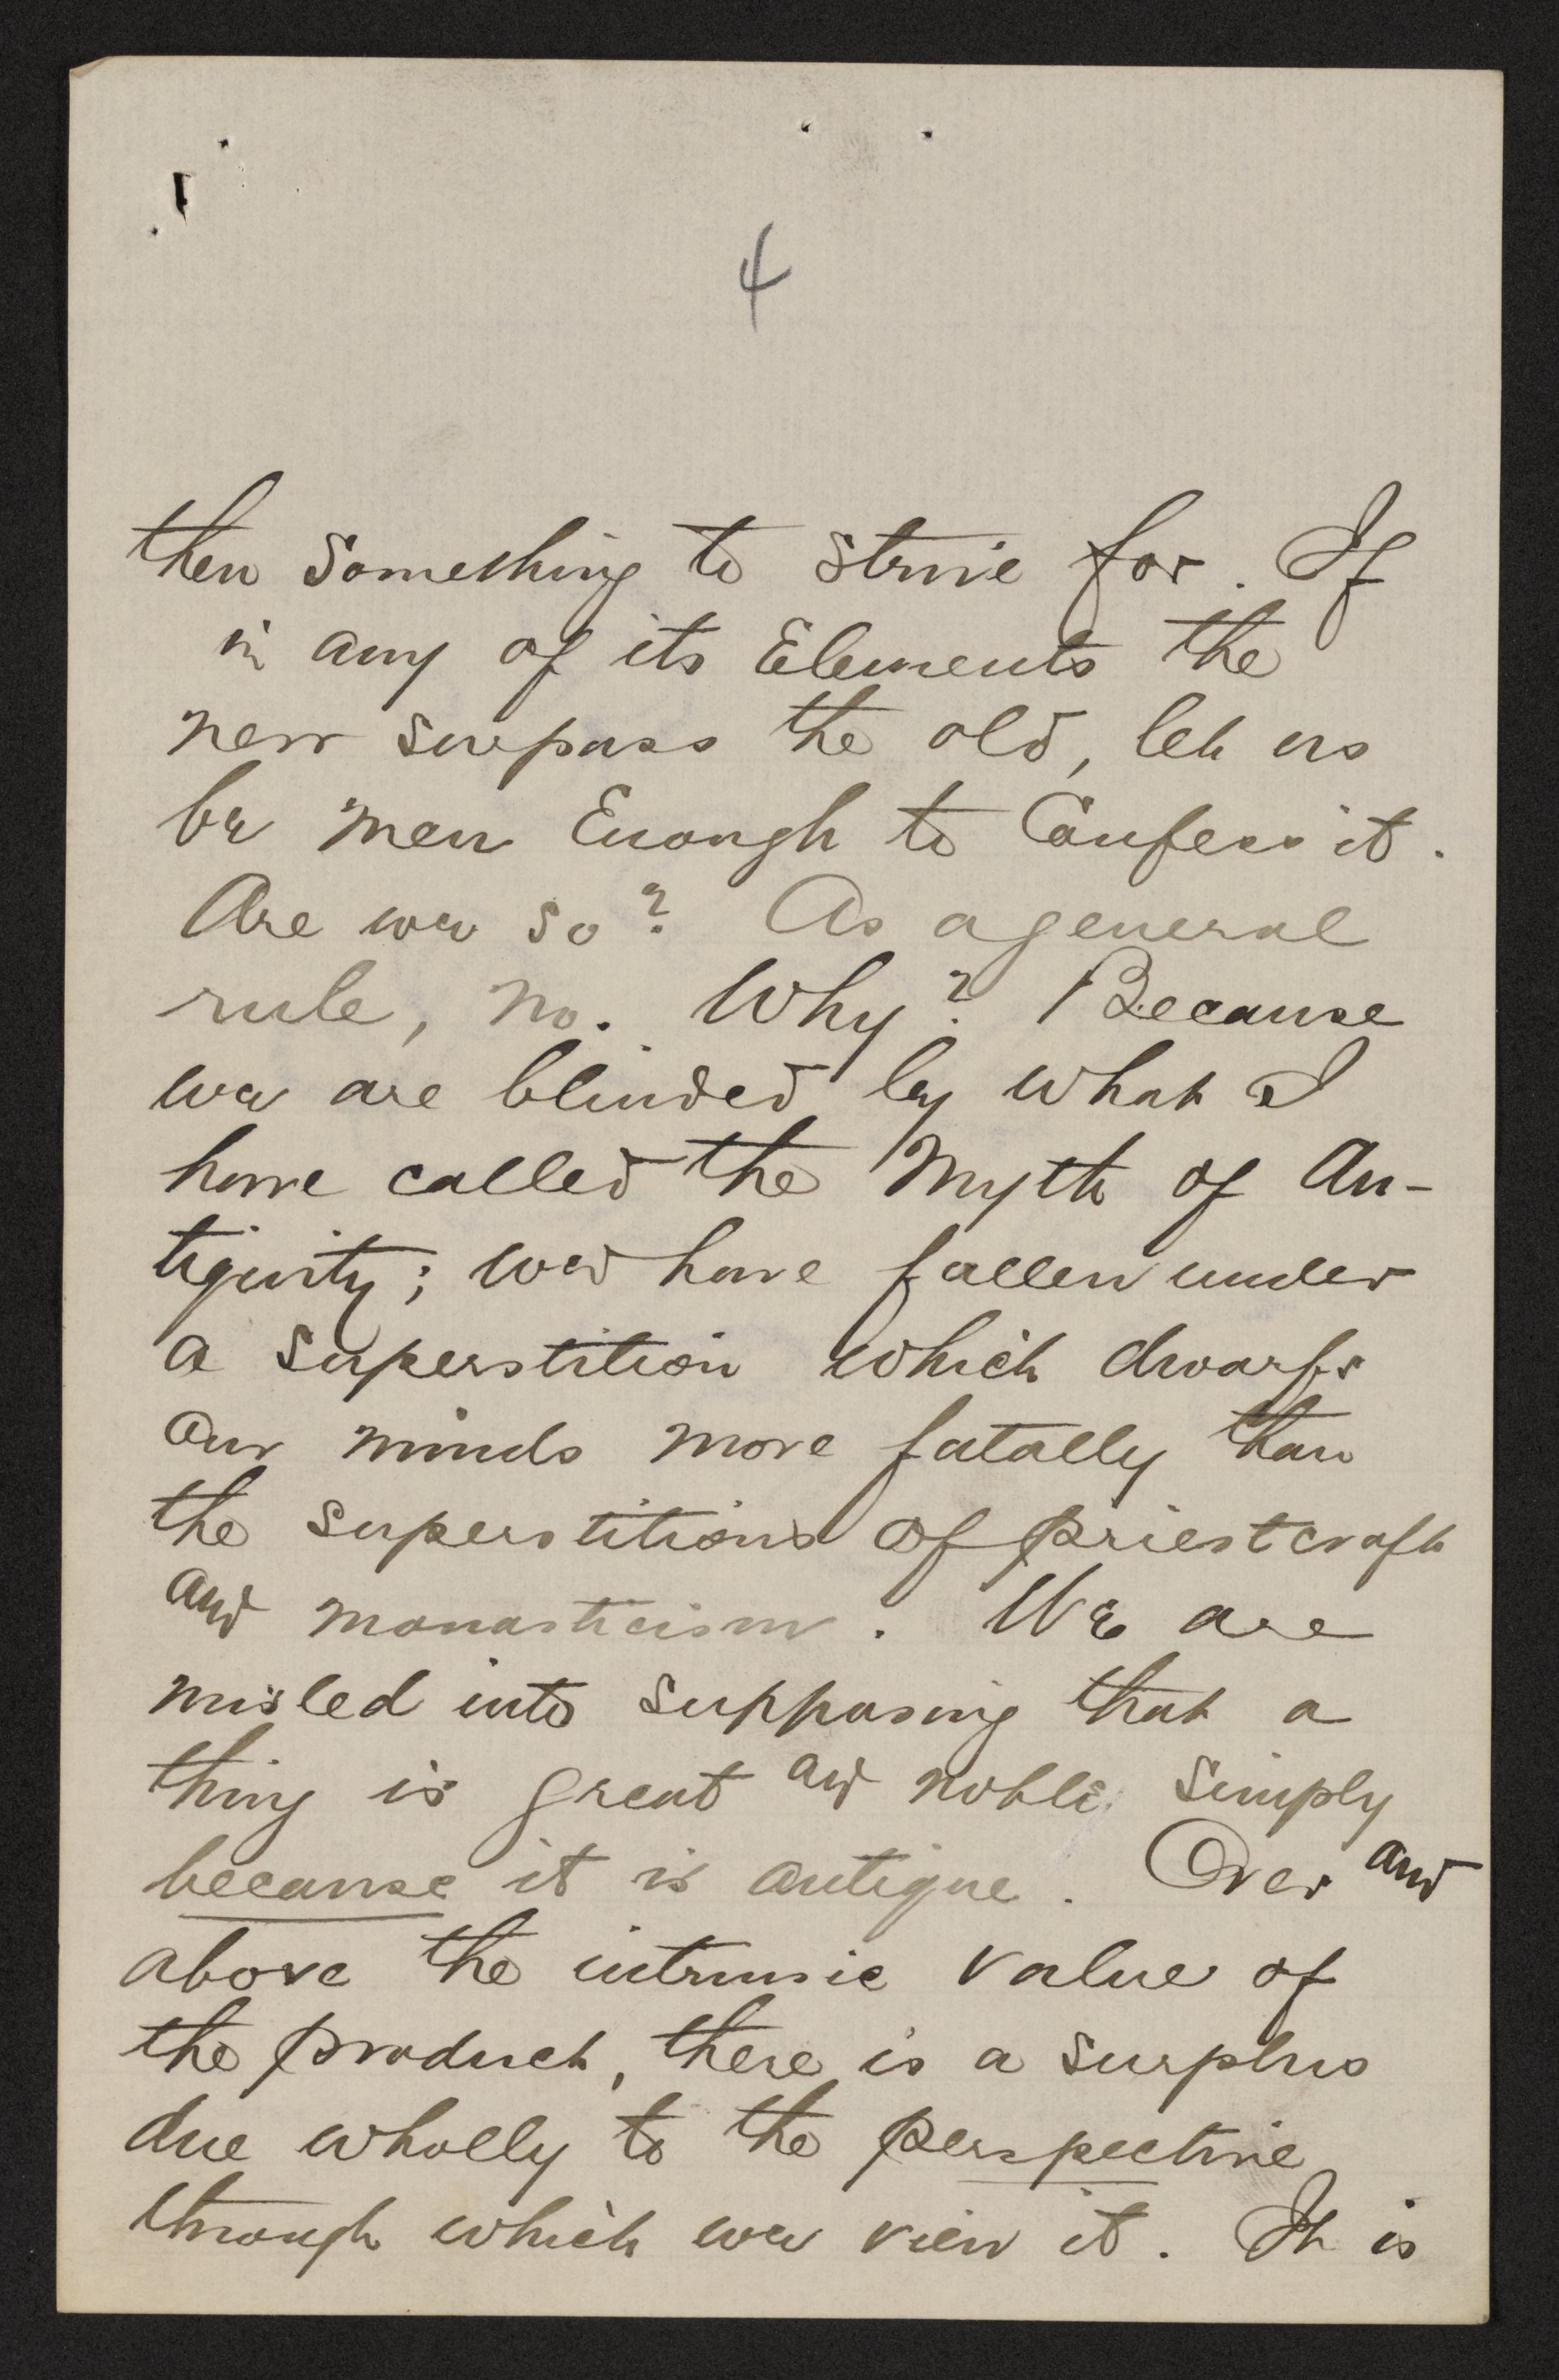 4
then something to strive for. If
in any of its Elements the
new surpass the old, let us
be men Enough to Confess it.
Are we so? As a general
rule, no. Why? Because
we are blinded by what I
have called the Myth of An-
tiquity; we have fallen under
a superstition which dwarfs
our minds more fatally than
the superstitions of priestcraft
and monasticism. We are
misled into supposing that a
thing is great and noble simply
because it is antique. Over and
above the intrinsic value of
the product, there is a surplus
due wholly to the perspective
through which we view it. It is